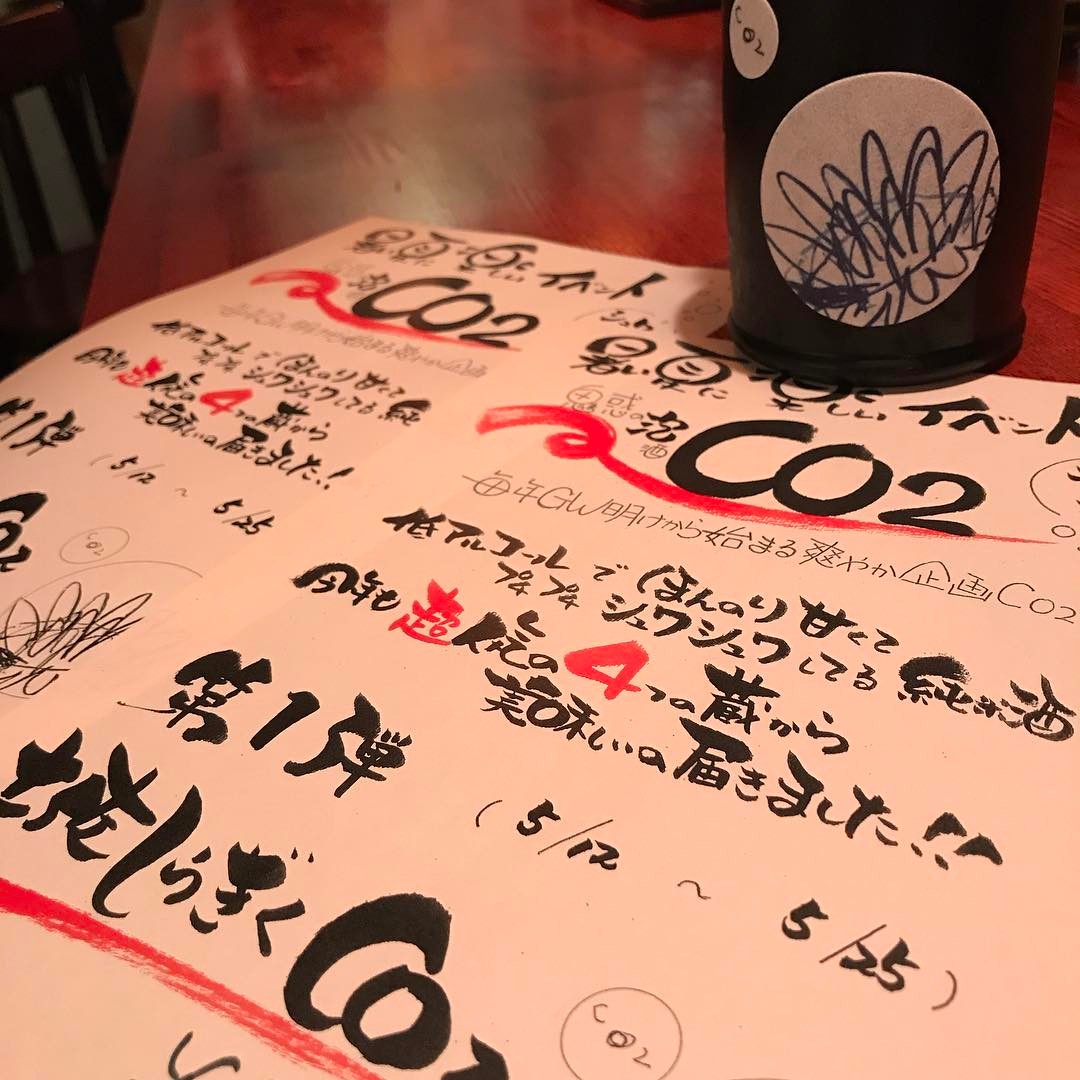 CO2
暑い夏に楽しいイベント
の泡 CO2
低アルコールでほんのり甘くて
プチプチシュワシュワしてる純
今年も超人気の4つの蔵から
美味しいの届きました!!
第1弾
(5/12 ~ 5/25
CO2
CO2
シュワ
暑い夏に楽しいイベント
魅惑の泡酒 CO2
毎年GW明けから始まる爽やか企画CO2
低アルコールでほんのり甘くて
プチプチシュワシュワしてる純米酒
今年も超人気の4つの蔵から
美味しいの届きました!!
第1弾
(5/12 ~ 5/25)
しらぎくCO2
CO2